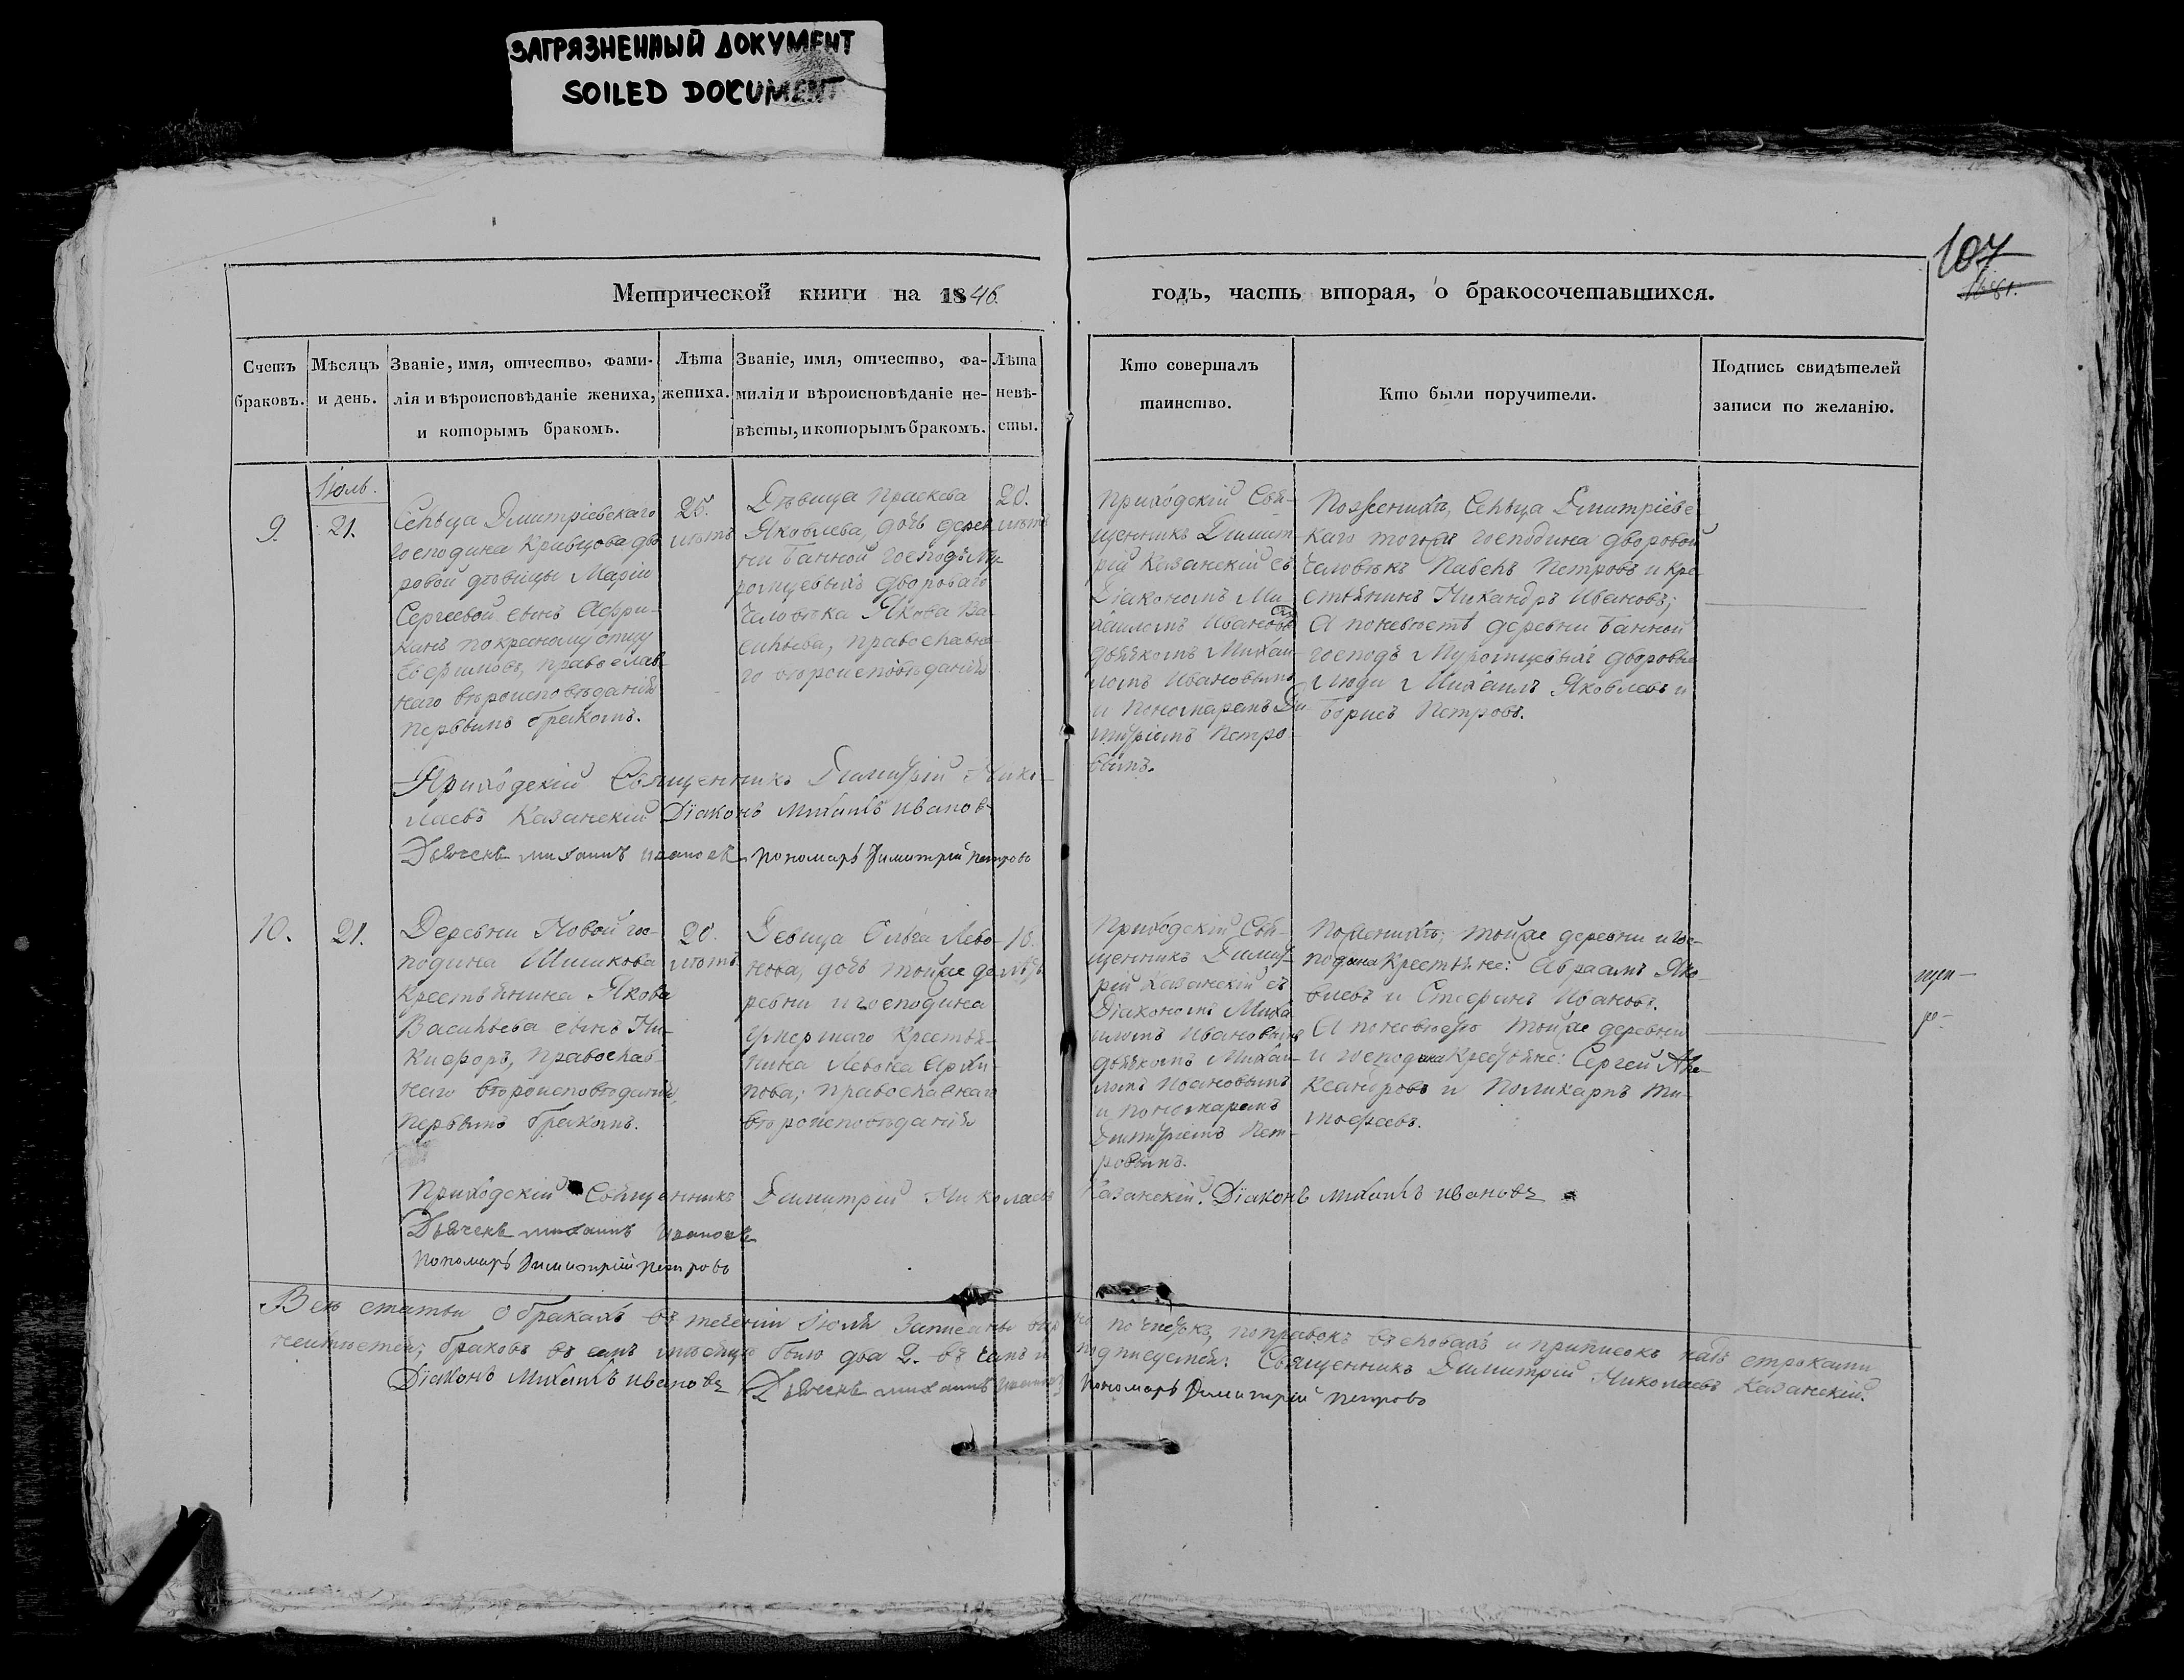 ЗАГРЯЗНЕННЫЙ ДОКУМЕНТ
SOILED DOCUMENT
107
Метрической книги на 1846
годъ, часть вторая, о бракосочетавшихся.
Счетъ
браковъ.
Мѣсяцъ
и день.
Званіе, имя, отчество, фами-
лія и вѣроисповѣданіе жениха,
и которымъ бракомъ.
Лѣта
жениха.
Званіе, имя, отчество, фа-
милія и вѣроисповѣданіе не-
вѣсты, и которымъ бракомъ.
Лѣта
невѣ-
сты.
Кто совершалъ
таинство.
Кто были поручители.
Подпись свидѣтелей
записи по желанію.
Іюль.
9.
21.
Сельца Димитріевскаго
господина Кравцова дво
ровой дѣвицы Маріи
Сергеевой сынъ Афри-
канъ по крестному отцу
Евфимовъ, православ
наго вѣроисповѣданія
первымъ бракомъ.
25.
лѣтъ
Дѣвица Праскева
Яковлева, дочь дерев
ни Банной господъ Му-
ромцевыхъ двороваго
человѣка Якова Ва-
сильева, православна
го вѣроисповѣданія
20.
лѣтъ
Приходскій Свя-
щенникъ Димит
рій Казанскій съ
Діакономъ Ми-
хаиломъ Ивановы
дьячкомъ Михаи-
ломъ Ивановымъ
и Пономаремъ Ди
митріемъ Петро-
вымъ.
По женихѣ, Сельца Димитріевс
каго тогожъ господина дворовой
человѣкъ Павелъ Петровъ и кре
стьянинъ Никандръ Ивановъ;
А по невѣстѣ деревни Банной
господъ Муромцевыхъ дворовые
люди Михаилъ Яковлевъ и
Борисъ Петровъ.
Приходскій Священникъ Димитрій Нико-
лаевъ Казанскій Діаконъ Михаилъ Ивановъ
Дьячекъ Михаилъ Ивановъ Пономарь Димитрій Петровъ
10.
21.
Деревни Новой гос-
подина Шишкова
крестьянина Якова
Васильева сынъ Ни-
кифоръ, православ-
наго вѣроисповѣданія,
первымъ бракомъ.
20.
лѣтъ
Девица Ольга Лево-
нова, дочь тойже де
ревни и господина
умершаго крестья-
нина Левона Архи-
пова; православнаго
вѣроисповѣданія
18.
лѣтъ
Приходскій Свя-
щенникъ Димит-
рій Казанскій съ
Діакономъ Миха
иломъ Ивановымъ
дьячкомъ Михаи-
ломъ Ивановымъ
и пономаремъ
Димитріемъ Пет-
ровымъ.
По женихѣ; тойже деревни и гос-
подина крестьяне: Авраамъ Яко-
влевъ и Стефанъ Ивановъ.
А по невѣстѣ тойже деревни
и господина крестьяне: Сергей Але-
ксандровъ и Поликарпъ Ти-
мофеевъ.
Приходскій Священникъ Димитрій Николаевъ Казанскій. Діаконъ Михаилъ Ивановъ
Дьячекъ Михаилъ Ивановъ
Пономарь Димитрій Петровъ
Всѣ статьи о бракахъ въ теченіи Іюля записаны почистокъ, поправокъ въ словахъ и приписокъ надъ строками
неимѣется; браковъ въ семъ мѣсяцѣ было два 2. въ чемъ и подписуемся: Священникъ Димитрій Николаевъ Казанскій.
Діаконъ Михаилъ Ивановъ Дьячекъ Михаилъ Ивановъ Пономарь Димитрій Петровъ